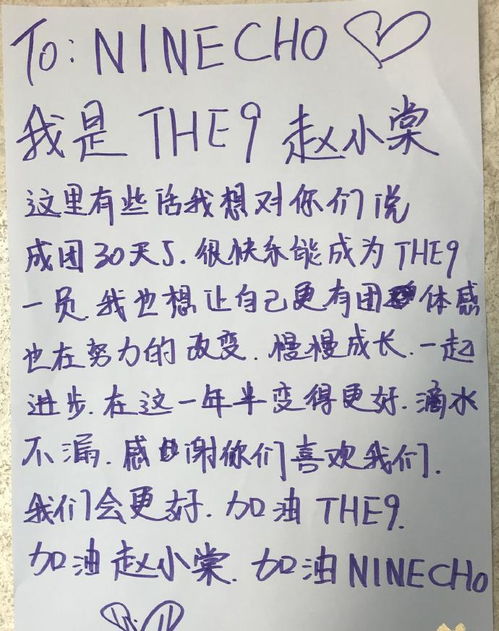 To: NINECHO
我是 THE9 赵小棠
这里有些话我想对你们说
成团30天了. 很快乐能成为 THE9
一员. 我也想让自己更有团体感
也在努力的改变. 慢慢成长. 一起
进步. 在这一年半变得更好. 滴水
不漏. 感谢你们喜欢我们.
我们会更好. 加油 THE9.
加油赵小棠. 加油 NINECHO